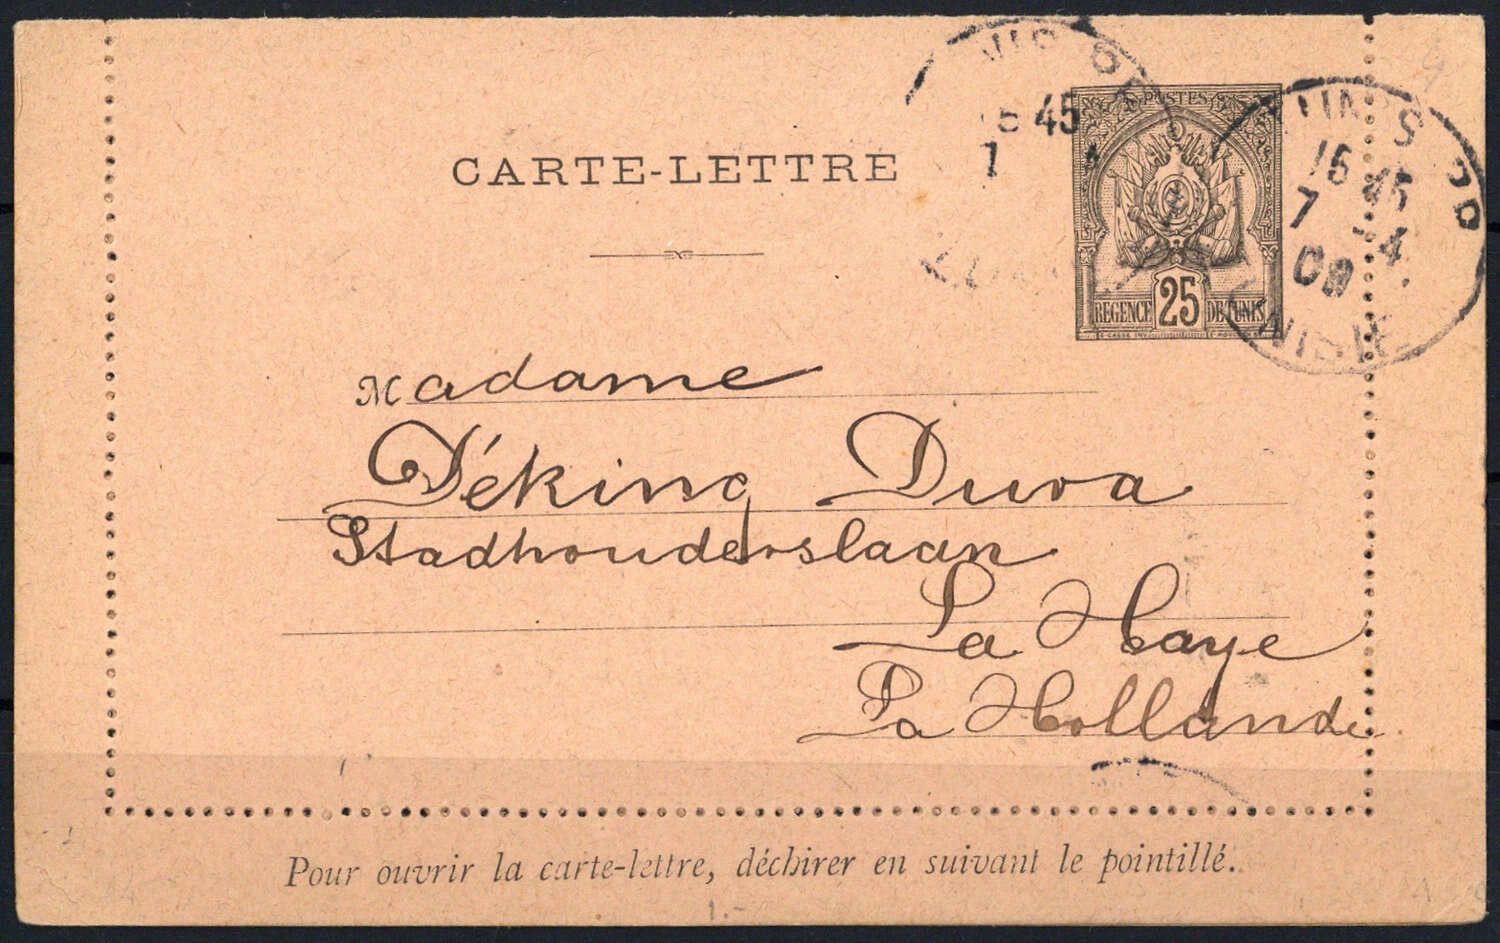 POSTES
CARTE-LETTRE
15 45
7
16 45
7 -4
09
NISIE
25
REGENCE DE TUNIS
Madame
Déking Dura
Stadhouderslaan
La Haye
La Hollande
Pour ouvrir la carte-lettre, déchirer en suivant le pointillé.
1.-